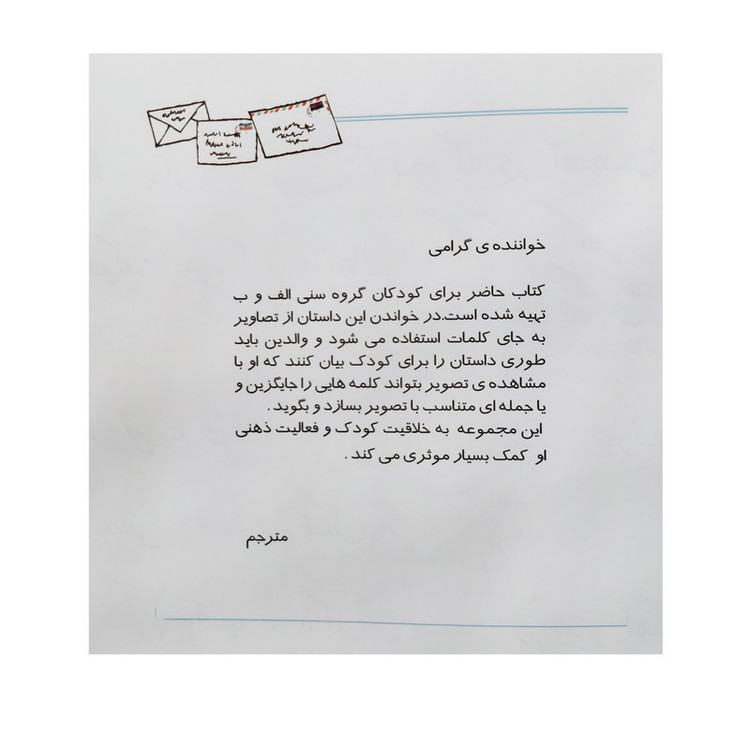 خواننده ی گرامی
کتاب حاضر برای کودکان گروه سنی الف و ب
تهیه شده است.در خواندن این داستان از تصاویر
به جای کلمات استفاده می شود و والدین باید
طوری داستان را برای کودک بیان کنند که او با
مشاهده ی تصویر بتواند کلمه هایی را جایگزین و
یا جمله ای متناسب با تصویر بسازد و بگوید .
این مجموعه به خلاقیت کودک و فعالیت ذهنی
او کمک بسیار موثری می کند .
مترجم